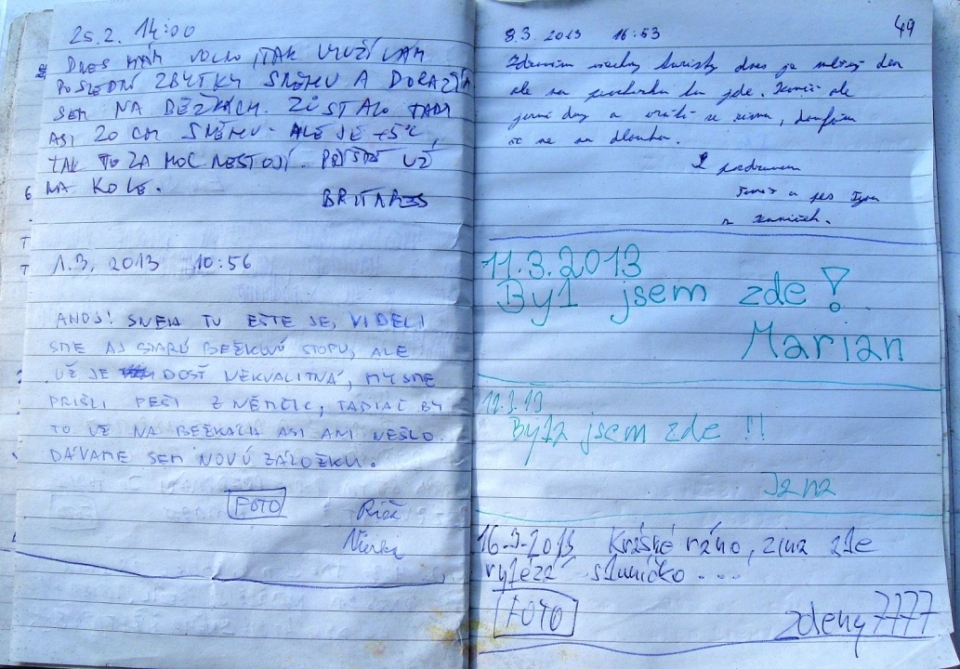 25.2. 14:00
DNES MÁM VOLNO, TAK VYUŽÍVÁM
POSLEDNÍ ZBYTKY SNĚHU A DORAZIL
SEM NA BĚŽKÁCH. ZŮSTALO TADY
ASI 20 CM SNĚHU. ALE JE +5°C,
TAK TO ZA MOC NESTOJÍ. PŘÍŠTĚ UŽ
NA KOLE.
1.3. 2013 10:56
AHOJ! SNEH TU EŠTE JE, VIDELI
SME AJ STARÚ BEŽKOVÚ STOPU, ALE
UŽ JE DOSŤ NEKVALITNÁ, MY SME
PRIŠLI PEŠI Z NĚMČIC, TADIAĽ BY
TO UŽ NA BEŽKÁCH ASI ANI NEŠLO.
DÁVAME SEM NOVÚ ZÁLOŽKU.
FOTO
49
8.3. 2013 16:53
Zdravím všechny turisty dnes je
ale na procházku to jde. ale
jarní dny a vrátí se zima, doufám
že ne na dlouho.
S pozdravem
a pes
11.3.2013
Byl jsem zde!
Marian
11.3.13
Byla jsem zde !!
Jana
16.3.2013 Krásné ráno, zima zde
vylézá sluníčko ....
FOTO
zdeny7777